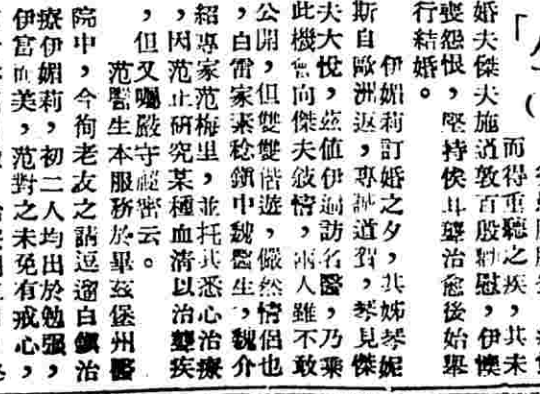 而得重聽之疾，其未
婚夫傑夫施道敦百般勸慰，伊懊
喪怨恨，堅持俟耳聾治愈後，始舉
行結婚。
伊媚莉訂婚之夕，其姊琴妮
斯自歐洲返，專誠道賀，琴見傑
夫大悅，茲值伊過訪名醫，乃乘
此機會向傑夫敘情，兩人雖不敢
公開，但雙雙偕遊，儼然情侶也
，白雷家素稔鎮中魏醫生，魏介
紹專家范梅里，並托其悉心治療
，因范正研究某種血清以治聾疾
，但又囑嚴守秘密云。
范醫生本服務於畢茲堡州醫
院中，今徇老友之請逗遛白鎮治
療伊媚莉，初二人均出於勉强，
伊富而美，范對之未免有戒心，